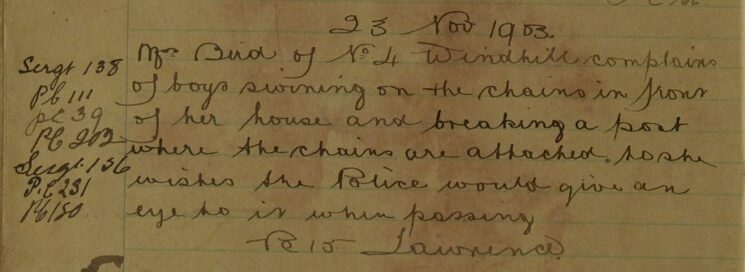 23 Nov 1903.
Mrs Bird of No 4 Windhill complains
of boys swining on the chains in front
of her house and breaking a post
where the chains are attached. to she
wishes the Police would give an
eye to it when passing
PC 15 Lawrence
Sergt 138
PC 111
PC 39
PC 202
Sergt. 156
P.C 231
PC 150